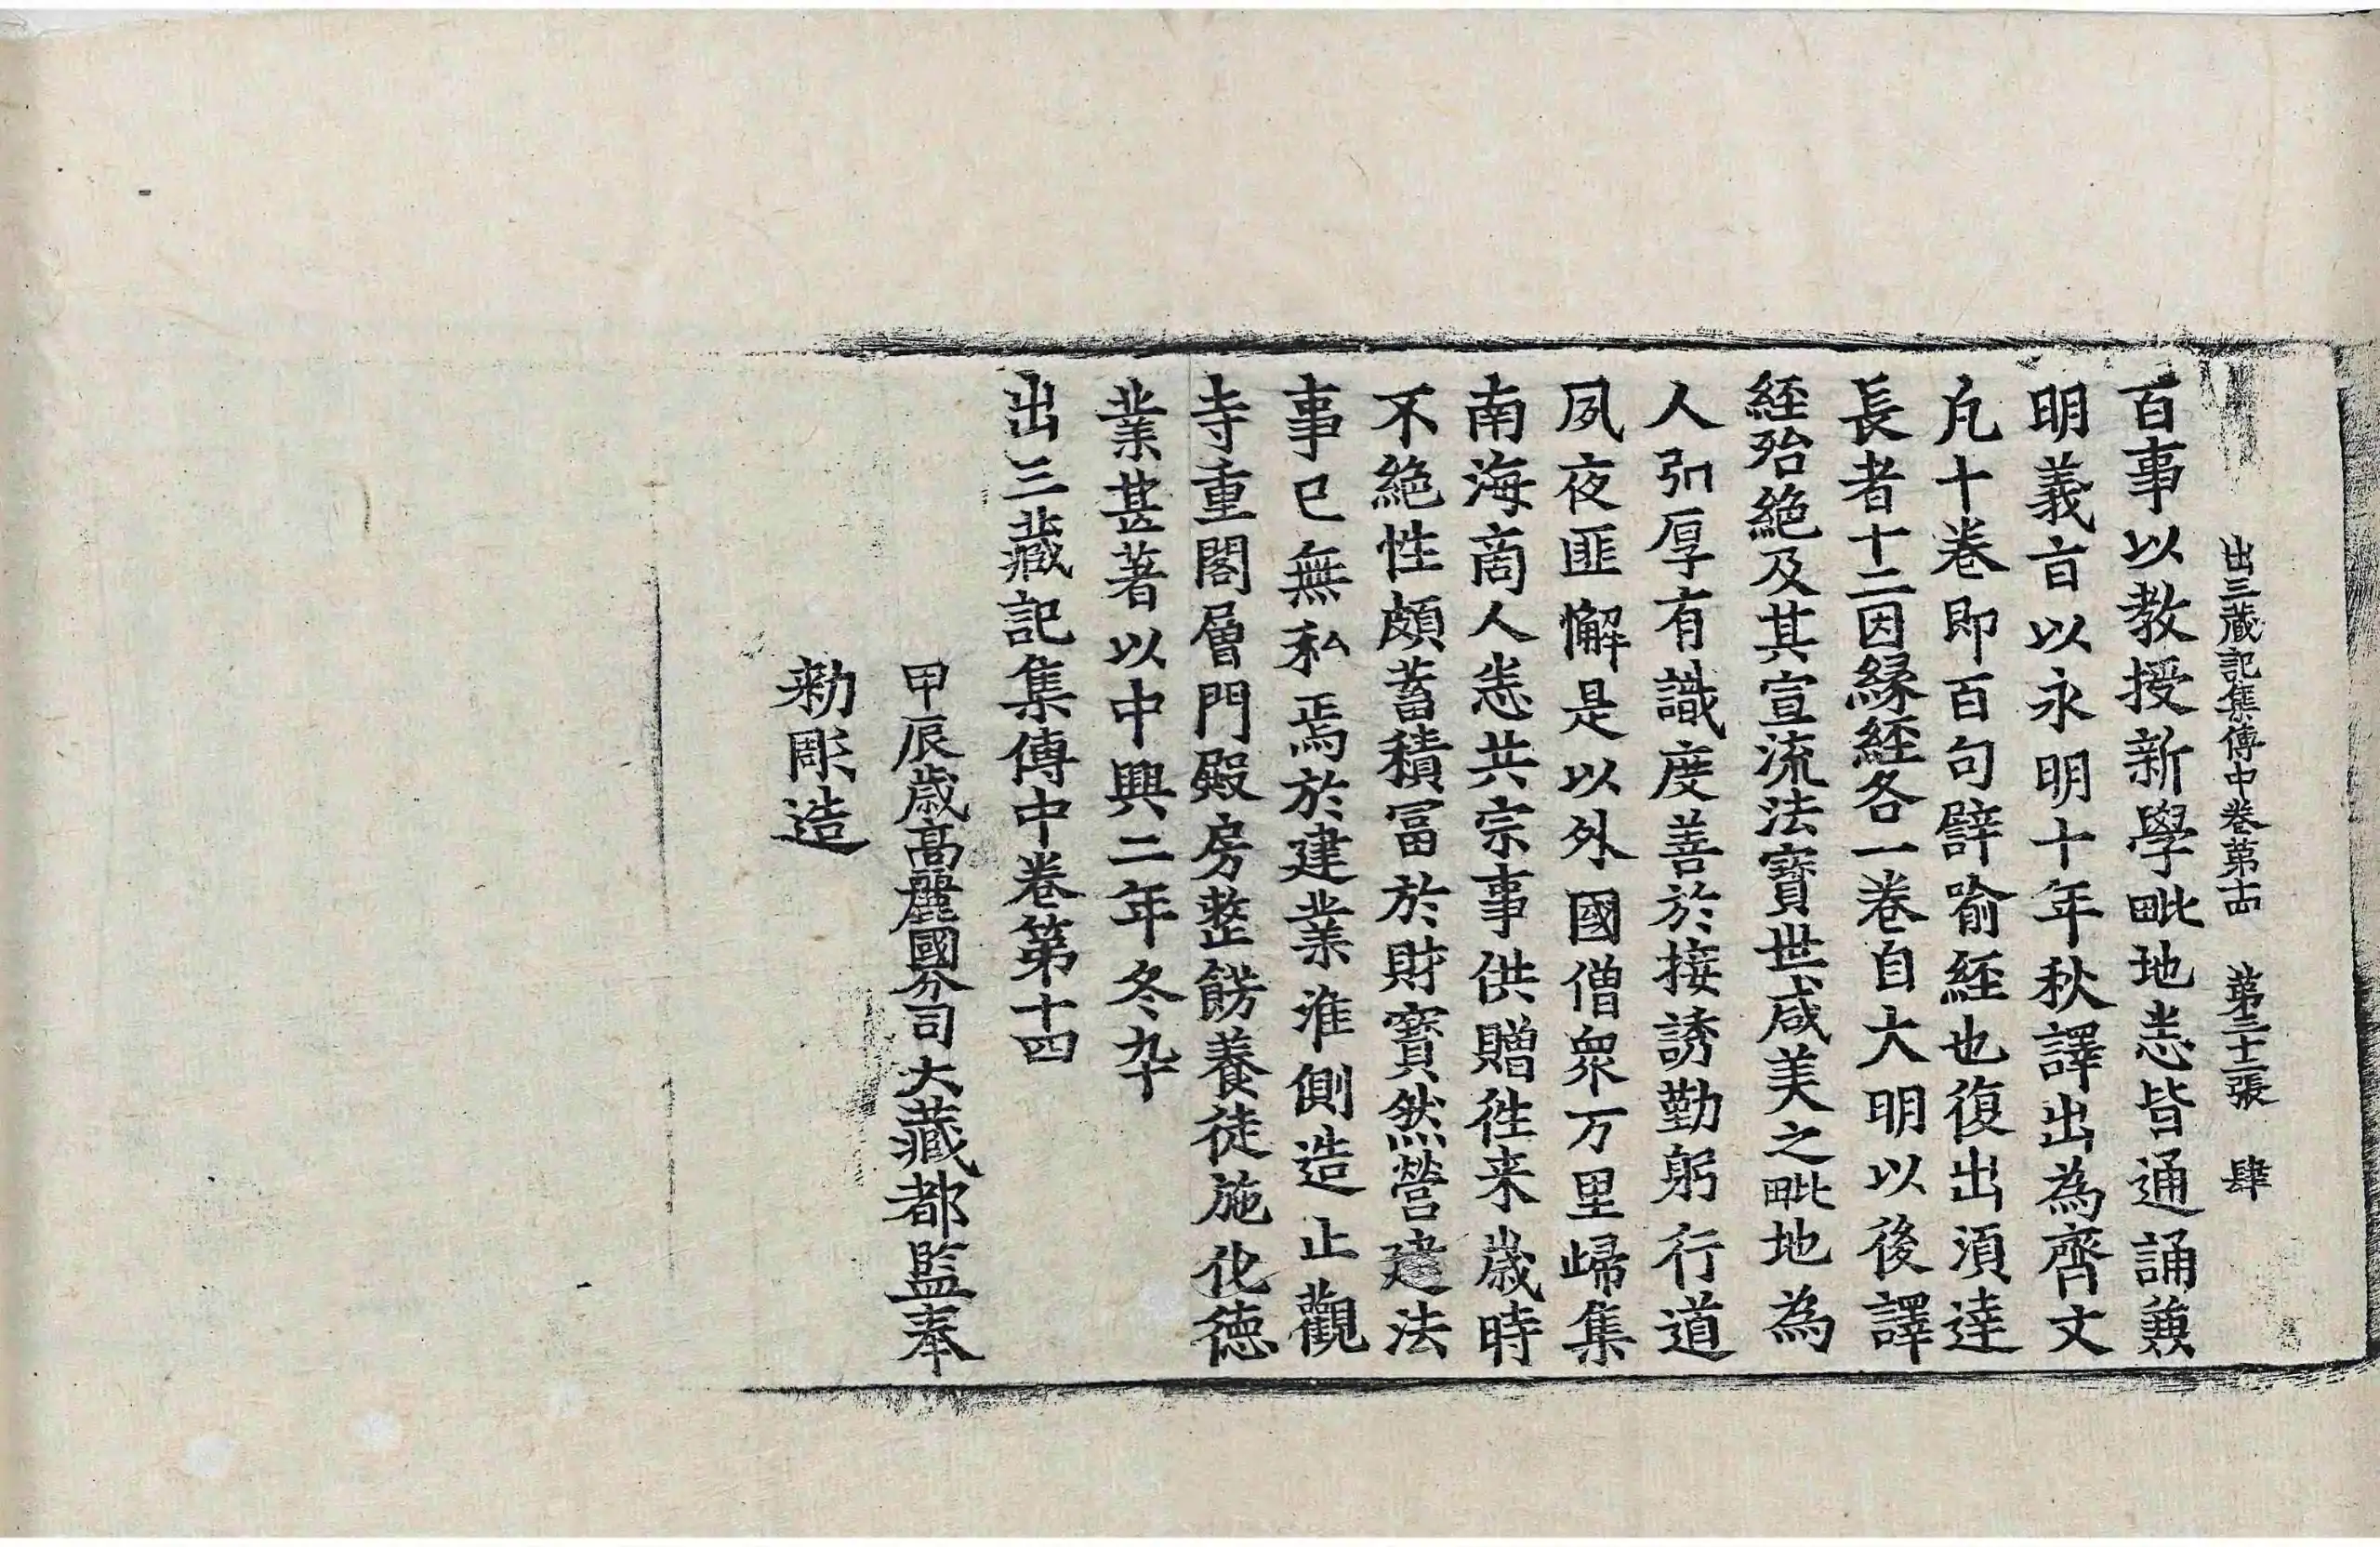 出三藏記集傳中卷第十四　第三十二張　肆
百事以教授新學毗地悉皆通誦兼
明義旨以永明十年秋譯出為齊文
凡十卷即百句譬喻經也復出湏達
長者十二因緣經各一卷自大明以後譯
経殆絶及其宣流法寶世咸美之毗地為
人弘厚有識度善於接誘勤躬行道
夙夜匪懈是以外國僧衆万里歸集
南海商人悉共宗事供贈徃来歲時
不絶性頗蓄積冨於財寶然營建法
事已無私焉於建業淮側造止觀
寺重閣層門殿房整餝養徒施化德
業甚著以中興二年冬卒
出三藏記集傳中卷第十四
甲辰歲高麗國分司大藏都監奉
勑彫造